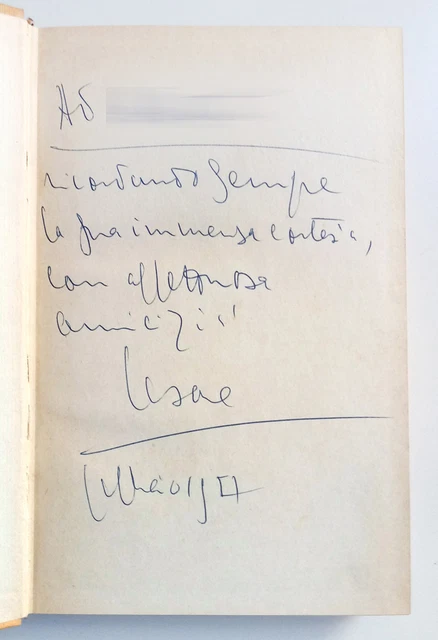 Ad
ricordando sempre
la sua immensa cortesia,
con affettuosa
amicizia
Cesare